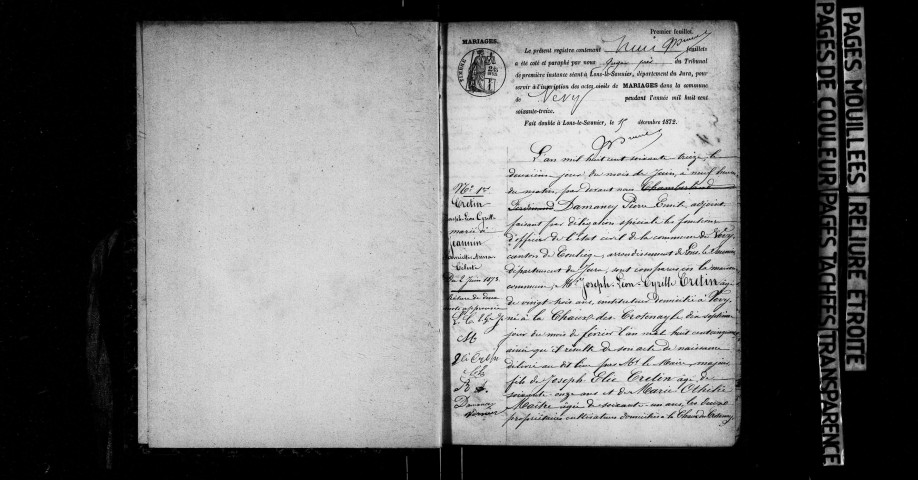 Premier feuillet.
MARIAGES.
Le présent registre contenant feuillets
a été coté et paraphé par nous juge du Tribunal
de première instance séant à Lons-le-Saunier, département du Jura, pour
servir à l'inscription des actes civils de MARIAGES dans la commune
de Vevy pendant l'année mil huit cent
soixante-treize.
Fait double à Lons-le-Saunier, le 15 décembre 1872.
TIMBRE
N° 1er
Cretin
Joseph-Léon-Cyrille
marié à
Jeannin
Céleste
2 Juin 1873
L'an mil huit cent soixante treize, le
deuxième jour du mois de Juin, à neuf heures
du matin, par devant nous Chamberland
Ferdinand Damancy Pierre Emile adjoint
faisant par délégation spéciale les fonctions
d'officier de l'état civil de la commune de Vevy,
canton de Conliège, arrondissement de Lons-le-Saunier
département du Jura, sont comparus en la maison
commune, Mr Joseph-Léon-Cyrille Cretin âgé
de vingt-trois ans, instituteur domicilié à Vevy,
né à la Chaux-des-Crotenay le dix-septième
jour du mois de février l'an mil huit cent cinquante
ainsi qu'il résulte de son acte de naissance
délivré au dit lieu par Mr le Maire, majeur
fils de Joseph Elie Cretin âgé de
soixante-onze ans et de Marie Othilie
Maître âgée de soixante-un ans, les deux
propriétaires cultivateurs domiciliés à la Chaux-des-Crotenay,
Damancy
PAGES MOUILLEES RELIURE ETROITE
PAGES DE COULEUR PAGES TACHEES TRANSPARENCE